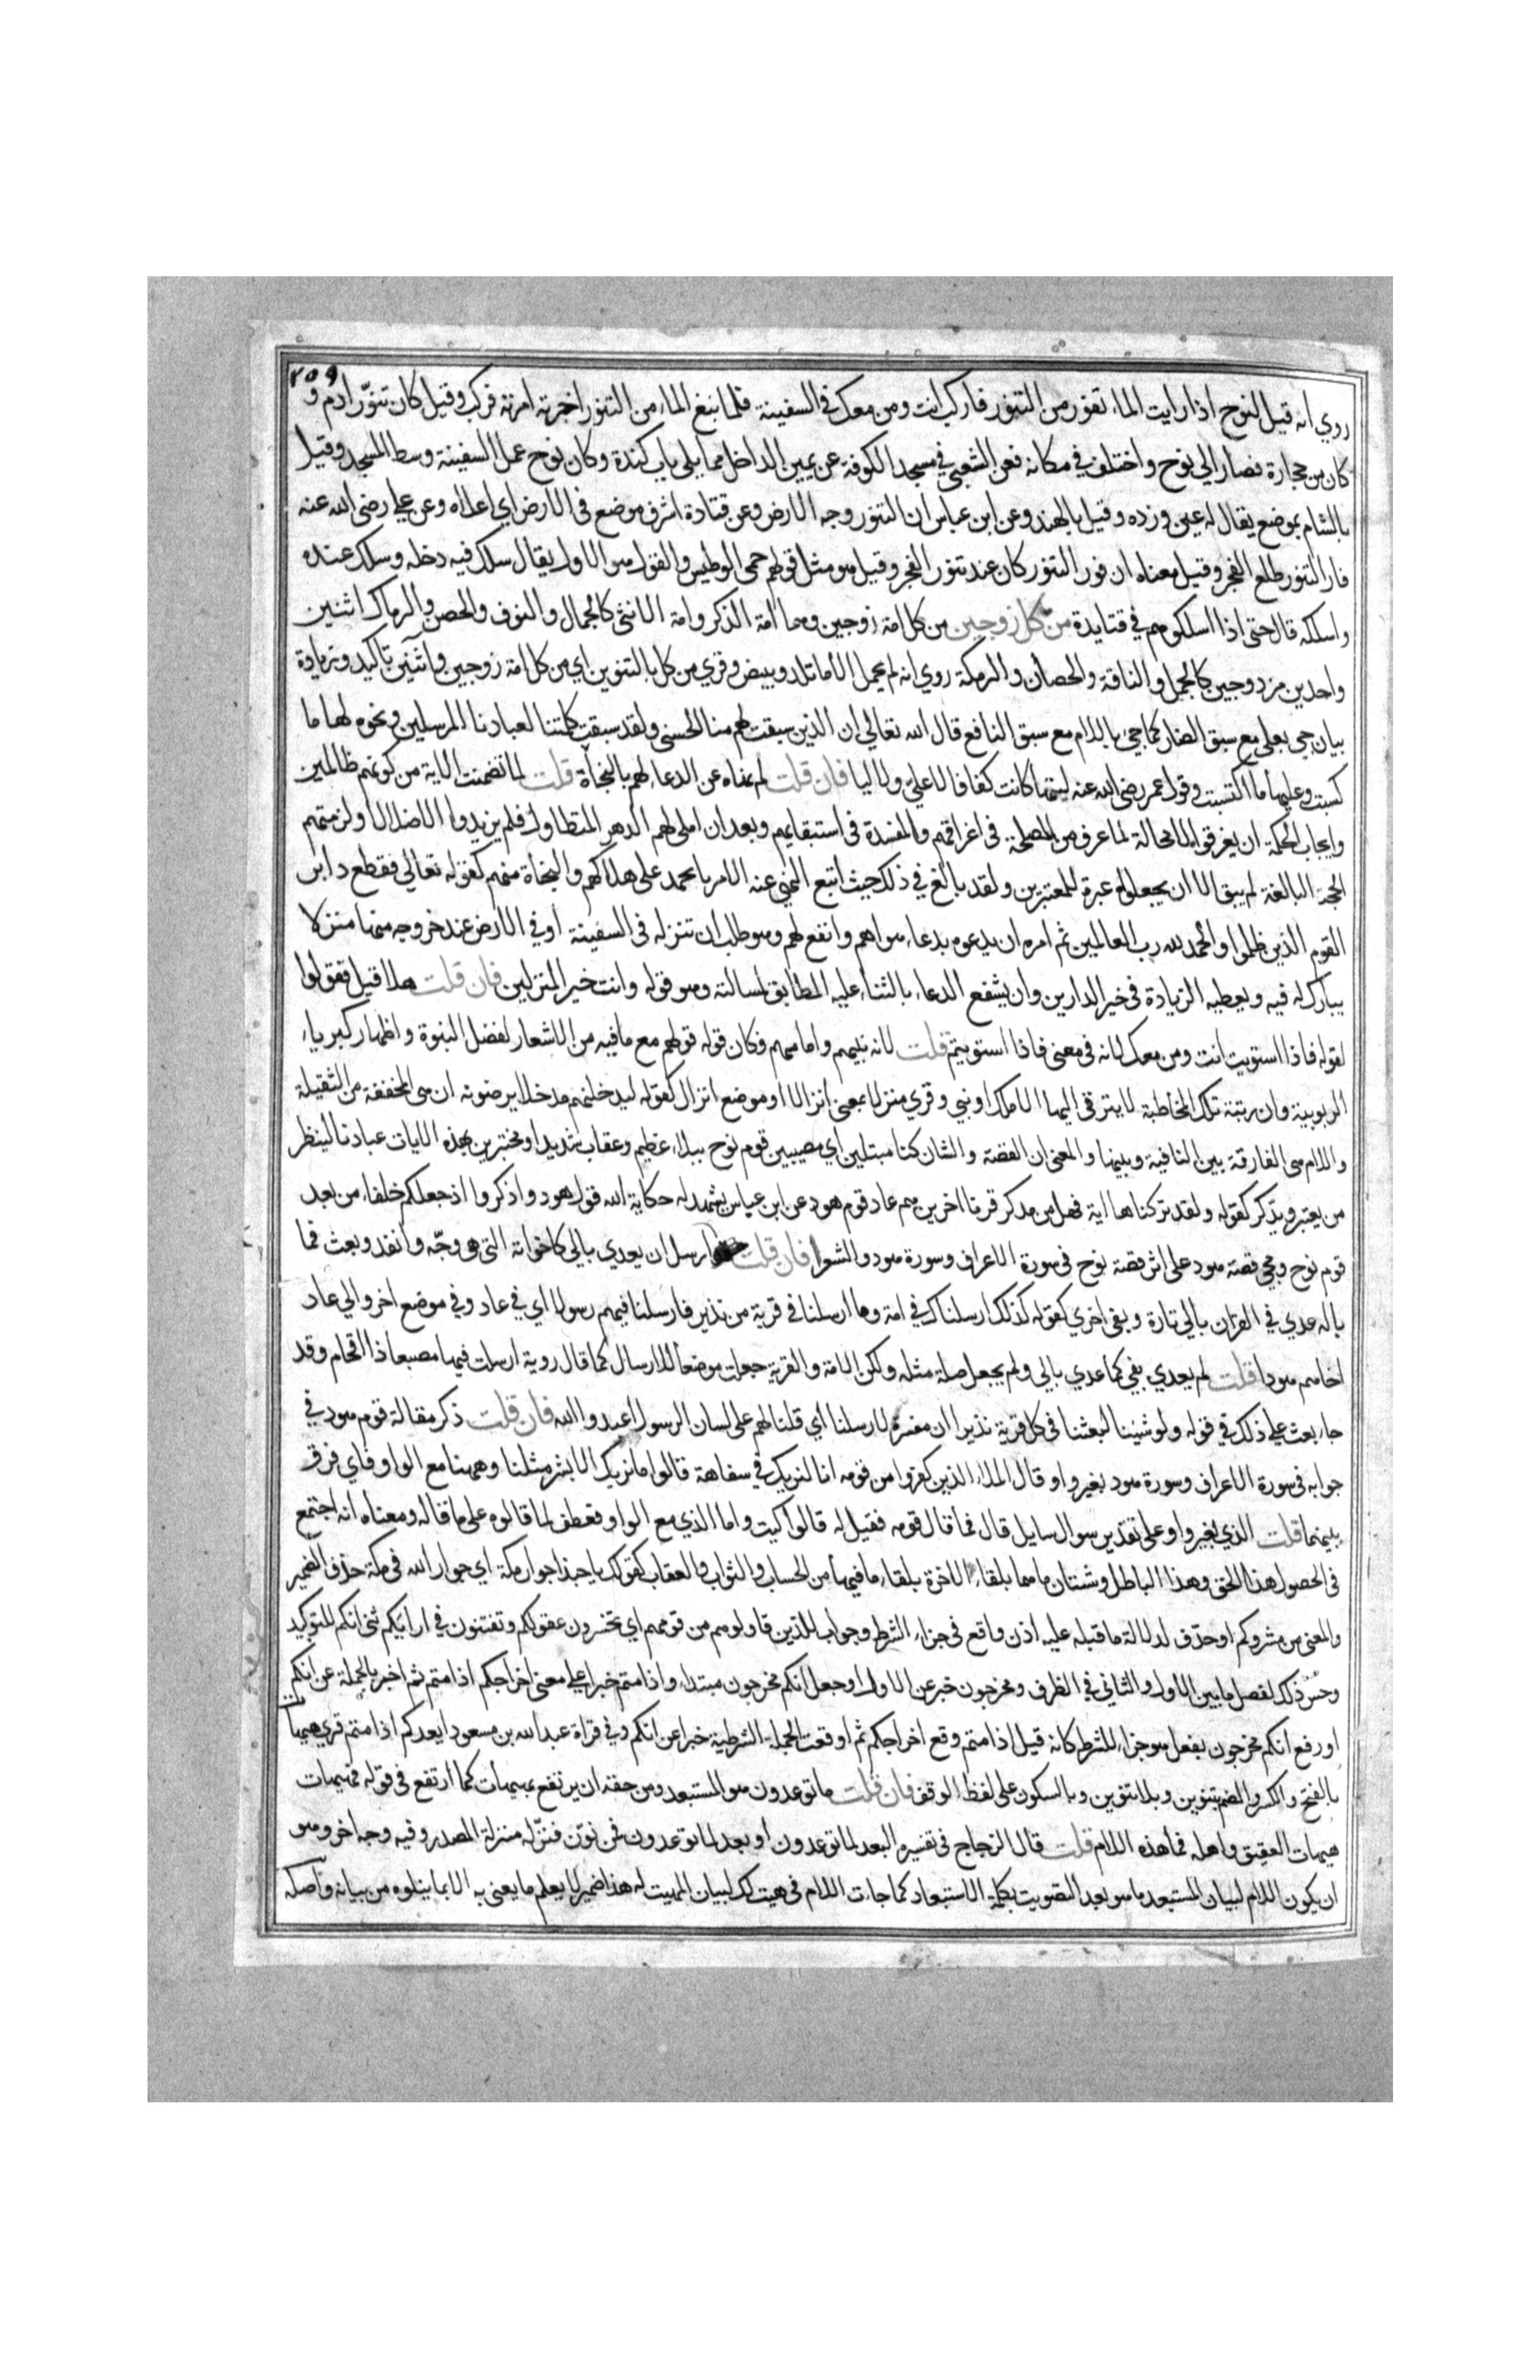 ٢٥٩
روي انه قيل لنوح اذا رايت الماء تفور من التنور فاركب انت ومن معك في السفينة فلما نبغ الماء من التنور اخبرته امرته فركب وقيل كان تنوّر ادم و
كان من حجارة فصار الى نوح واختلف في مكانه فعن الشعبي في مسجد الكوفة عن يمين الداخل مما يلي باب كندة وكان نوح عمل السفينة وسط المسجد وقيل
بالشام بموضع يقال له عين ورده وقيل بالهند وعن ابن عباس ان التنور وجه الارض وعن قتادة اشرف موضع في الارض اي اعلاه وعن علي رضي الله عنه
فار التنور طلع الفجر وقيل معناه ان فور التنور كان عند تنور الفجر وقيل هو مثل قولهم حمي الوطيس والقول هو الاول يقال سلك فيه دخله وسلك عنده
واسلكه قال حتى اذا اسلكوهم في قتايدة من كل زوجين من كل امة زوجين وهما امة الذكر وامة الانثى كالجمال والنوق والحصن والرماك اثنين
واحدين مزدوجين كالجمل والناقة والحصان والرمكة روي انه لم يحمل الا ما تلد وبيض وقري من كل بالتنوين اي من كل امة زوجين واثنين تاكيد وزيادة
بيان جي بعلى مع سبق الضار كما جيء باللام مع سبق النافع قال الله تعالى ان الذين سبقت لهم منا الحسنى ولقد سبقت كلمتنا لعبادنا المرسلين ونحوه لها ما
كسبت وعليها ما اكتسبت وقول عمر رضي الله عنه ليتها كانت كفافا لا علي ولا ليا فان قلت لم نهاه عن الدعاء لهم بالنجاة قلت لما تضمنت الاية من كونهم ظالمين
وايجاب الحكمة ان يغرقوا لا محالة لما عرف من المصلحة في اغراقهم والمفسدة في استبقايهم وبعد ان املى لهم الدهر المتطاول فلم يزيدوا الا ضلالا ولزمتهم
الحجة البالغة لم يبق الا ان يجعلوا عبرة للمعتبرين ولقد بالغ في ذلك حيث اتبع النهي عنه الامر بالحمد على هلاكهم والنجاة منهم كقوله تعالى فقطع دابر
القوم الذين ظلموا والحمد لله رب العالمين ثم امره ان يدعوه بدعاء هو اهم وانفع لهم وهو طلب ان تنزله في السفينة او في الارض عند خروجه منها منزلا
يبارك له فيه ويعطيه الزيادة في خير الدارين وان يشفع الدعاء بالثناء عليه المطابق لمسالته وهو قوله وانت خير المنزلين فان قلت هلا قيل فقولوا
لقوله فاذا استويت انت ومن معك لانه في معنى فاذا استويتم قلت لانه نبيهم وامامهم فكان قوله قولهم مع ما فيه من الاشعار لفضل النبوة واظهار كبرياء
الربوبية وان رتبة تلك المخاطبة لا يترقى اليها الا ملك او نبي وقري منزلا بمعنى انزالا او موضع انزال كقوله ليدخلنهم مدخلا يرضونه ان هي المخففة من الثقيلة
واللام هي الفارقة بين النافية وبينها والمعنى ان القصة والشان كنا مبتلين اي مصيبين قوم نوح ببلاء عظيم وعقاب شديد او مختبرين بهذه الايات عبادنا لينظر
من يعتبر ويذّكر كقوله ولقد تركناها اية فهل من مدكر قرنا اخرين هم عاد قوم هود عن ابن عباس يشهد له حكاية الله قول هود واذكروا اذ جعلكم خلفاء من بعد
قوم نوح ومجي قصة هود على اثر قصة نوح في سورة الاعراف وسورة هود والشعرا فان قلت ارسل ان يعدي بالى كاخواته التي هو وجّه وانفد وبعث فما
باله عدي في القران بالى تارة وبفي اخري كقوله كذلك ارسلناك في امة وما ارسلنا في قرية من نذير فارسلنا فيهم رسولا اي في عاد وفي موضع اخر والى عاد
اخاهم هودا قلت لم يعدي بفي كما عدي بالى ولم يجعل صلة مثله ولكن الامة والقرية جعلت موضعا للارسال كما قال روية ارسلت فيها مصعبا ذا اقحام وقد
جاء بعث على ذلك في قوله ولو شئنا لبعثنا في كل قرية نذيرا ان مفسرة لارسلنا اي قلنا لهم على لسان الرسول اعبدوا الله فان قلت ذكر مقالة قوم هود في
جوابه في سورة الاعراف وسورة هود بغير واو قال الملاء الذين كفروا من قومه انا لنريك في سفاهة قالوا ما نريك الا بشر مثلنا وههنا مع الواو فاي فرق
بينهما قلت الذي بغير واو على تقدير سوال سايل قال فما قال قومه فقيل له قالوا كيت واما الذي مع الواو فعطف لما قالوه على ما قاله ومعناه انه اجتمع
في الحصول هذا الحق وهذا الباطل وشتان ما هما بلقاء الاخرة بلقاء ما فيها من الحساب والثواب والعقاب كقولك يا حبذا جوار مكة اي جوار الله في مكة حذف الضمير
والمعنى من مشروبكم او حذف لدلالة ما قبله عليه اذن واقع في جزاء الشرط وجواب للذين قاولوهم من قومهم اي تخسرون عقولكم وتغبنون في ارايكم ثنى انكم للتوكيد
وحسّن ذلك لفصل ما بين الاول والثاني في الظرف ومخرجون خبر عن الاول او جعل انكم مخرجون مبتداء واذا متم خبرا على معنى اخراجكم اذا متم ثم اخبر بالجملة عن انكم
او رفع انكم مخرجون بفعل هو جزاء للشرط كانه قيل اذا متم وقع اخراجكم ثم اوقعت الجملة الشرطية خبرا عن انكم وفي قراة عبد الله بن مسعود ايعدكم اذا متم قري هيهات
بالفتح والكسر والضم بتنوين وبلا تنوين وبالسكون على لفظ الوقف فان قلت ما توعدون هو المستبعد ومن حقه ان يرتفع بهيهات كما ارتفع في قوله فهيهات
هيهات العقيق واهله فما هذه اللام قلت قال الزجاج في تفسيره البعد لما توعدون او بعد لما توعدون فمن نوّن فنزّله منزلة المصدر وفيه وجه اخر وهو
ان يكون اللام لبيان المستبعد ما هو بعد التصويت بكلمة الاستبعاد كما جات اللام في هيت لك لبيان المهيت له هذا ضمير لا يعلم ما يعنى به الا بما يتلوه من بيانه واصله